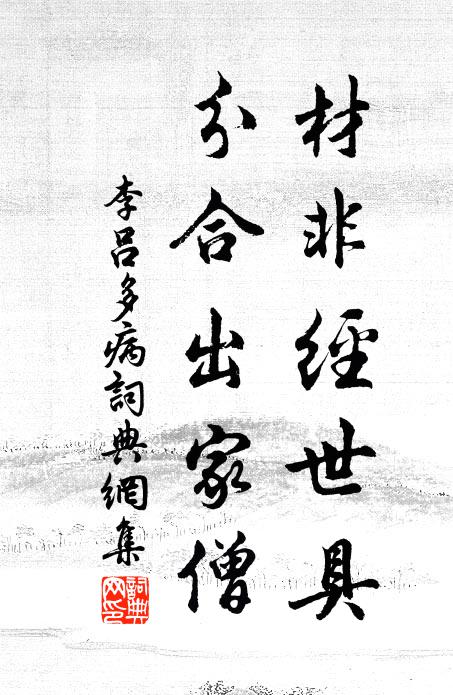 材非經世具
分合出家僧
李呂多病詞典網集
詞典网印